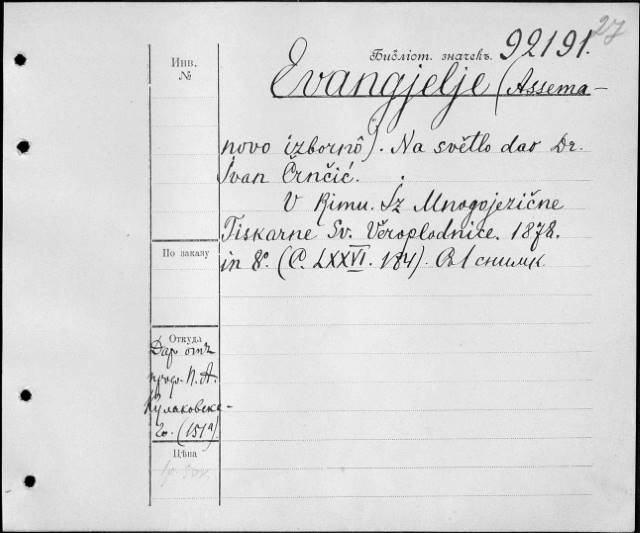 27
Библіот. значекъ. 92191.
Инв.
№
Evangjelje (Assema-
novo izbornô). Na světlo dao Dr.
Ivan Črnčić.
V Rimu. Iz Mnogojezične
Tiskarne Sv. Věroplodnice. 1878.
По заказу
in 8º. (C. LXXVI. 184). Въ 1 снимк
Откуда
Даръ отъ
проф. П. А.
Кулаковска-
го. (151а)
Цѣна